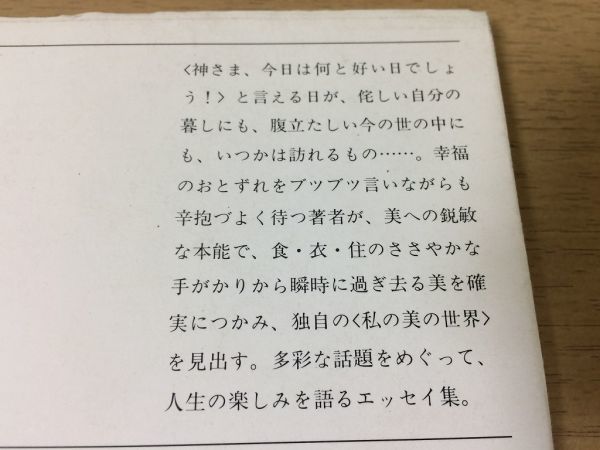 〈神さま、今日は何と好い日でしょ
う！〉と言える日が、侘しい自分の
暮しにも、腹立たしい今の世の中に
も、いつかは訪れるもの……。幸福
のおとずれをブツブツ言いながらも
辛抱づよく待つ著者が、美への鋭敏
な本能で、食・衣・住のささやかな
手がかりから瞬時に過ぎ去る美を確
実につかみ、独自の〈私の美の世界〉
を見出す。多彩な話題をめぐって、
人生の楽しみを語るエッセイ集。